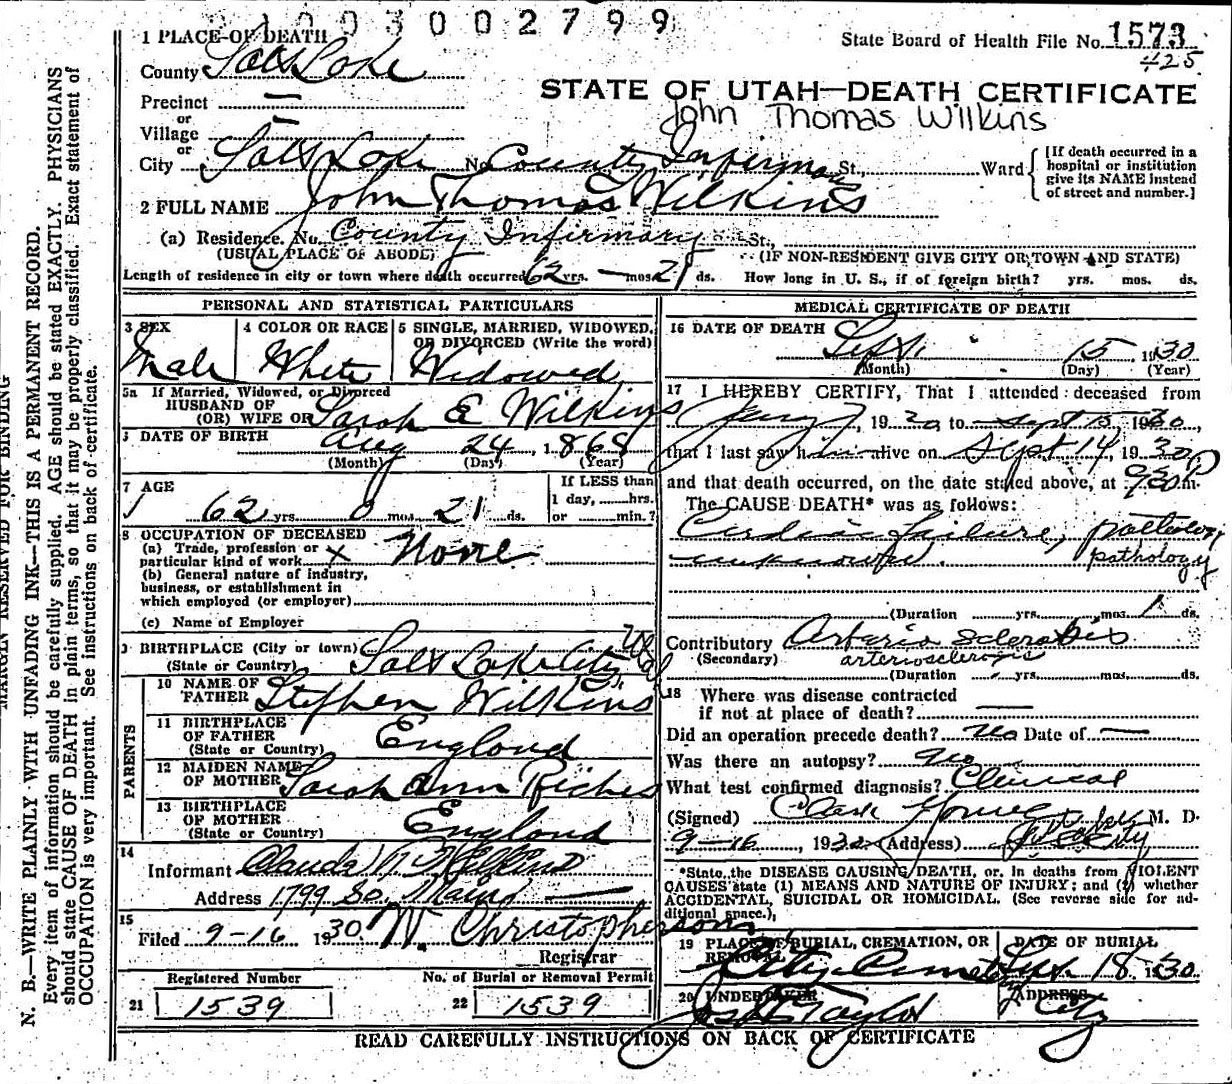 2 1 0 0 3 0 0 2 7 9 9
1 PLACE OF DEATH
State Board of Health File No. 1573
425
County Salt Lake
STATE OF UTAH—DEATH CERTIFICATE
John Thomas Wilkins
Precinct —
or
Village —
or
City Salt Lake No. County Infirmary St., Ward
[If death occurred in a hospital or institution give its NAME instead of street and number.]
2 FULL NAME John Thomas Wilkins
(a) Residence. No. County Infirmary St.,
(USUAL PLACE OF ABODE) (IF NON-RESIDENT GIVE CITY OR TOWN AND STATE)
Length of residence in city or town where death occurred 62 yrs. — mos. 21 ds. How long in U. S., if of foreign birth? yrs. mos. ds.
PERSONAL AND STATISTICAL PARTICULARS
3 SEX
Male
4 COLOR OR RACE
White
5 SINGLE, MARRIED, WIDOWED, OR DIVORCED (Write the word)
Widowed
5a If Married, Widowed, or Divorced
HUSBAND OF
(OR) WIFE OF Sarah E Wilkins
DATE OF BIRTH Aug 24, 1868
(Month) (Day) (Year)
7 AGE
62 yrs. 0 mos. 21 ds.
If LESS than
1 day, hrs.
or min.?
8 OCCUPATION OF DECEASED
(a) Trade, profession or
particular kind of work x None
(b) General nature of industry,
business, or establishment in
which employed (or employer)
(c) Name of Employer
9 BIRTHPLACE (City or town) Salt Lake City,
(State or Country)
PARENTS
10 NAME OF
FATHER Stephen Wilkins
11 BIRTHPLACE
OF FATHER
(State or Country) England
12 MAIDEN NAME
OF MOTHER Sarah Ann Riches
13 BIRTHPLACE
OF MOTHER
(State or Country) England
14
Informant Claude
Address 1799 So. Main
15
Filed 9-16 1930 W. Christopherson,
Registrar
Registered Number
21 1539
No. of Burial or Removal Permit
22 1539
MEDICAL CERTIFICATE OF DEATH
16 DATE OF DEATH
Sept. 15, 1930
(Month) (Day) (Year)
17 I HEREBY CERTIFY, That I attended deceased from
1930 to Sept 15, 1930,
that I last saw him alive on Sept 14, 1930
and that death occurred, on the date stated above, at 930 P m.
The CAUSE DEATH* was as follows:
Cardiac failure, pathology
unknown. pathology
(Duration yrs. mos. 1 ds.
Contributory Arterio sclerosis
(Secondary) arteriosclerosis
(Duration yrs. mos. ds.
18 Where was disease contracted
if not at place of death? —
Did an operation precede death? no Date of —
Was there an autopsy? no
What test confirmed diagnosis? Clinical
(Signed) Clark Young M. D.
9-16, 1930 (Address) City
*State the DISEASE CAUSING DEATH, or, in deaths from VIOLENT
CAUSES state (1) MEANS AND NATURE OF INJURY; and (2) whether
ACCIDENTAL, SUICIDAL OR HOMICIDAL. (See reverse side for additional space.)
19 PLACE OF BURIAL, CREMATION, OR
REMOVAL
City Cemetery
DATE OF BURIAL
Sept. 18, 1930
20 UNDERTAKER
Jos Taylor
ADDRESS
City
READ CAREFULLY INSTRUCTIONS ON BACK OF CERTIFICATE
MARGIN RESERVED FOR BINDING
N. B.—WRITE PLAINLY WITH UNFADING INK—THIS IS A PERMANENT RECORD.
Every item of information should be carefully supplied. AGE should be stated EXACTLY. PHYSICIANS
should state CAUSE OF DEATH in plain terms, so that it may be properly classified. Exact statement of
OCCUPATION is very important. See instructions on back of certificate.